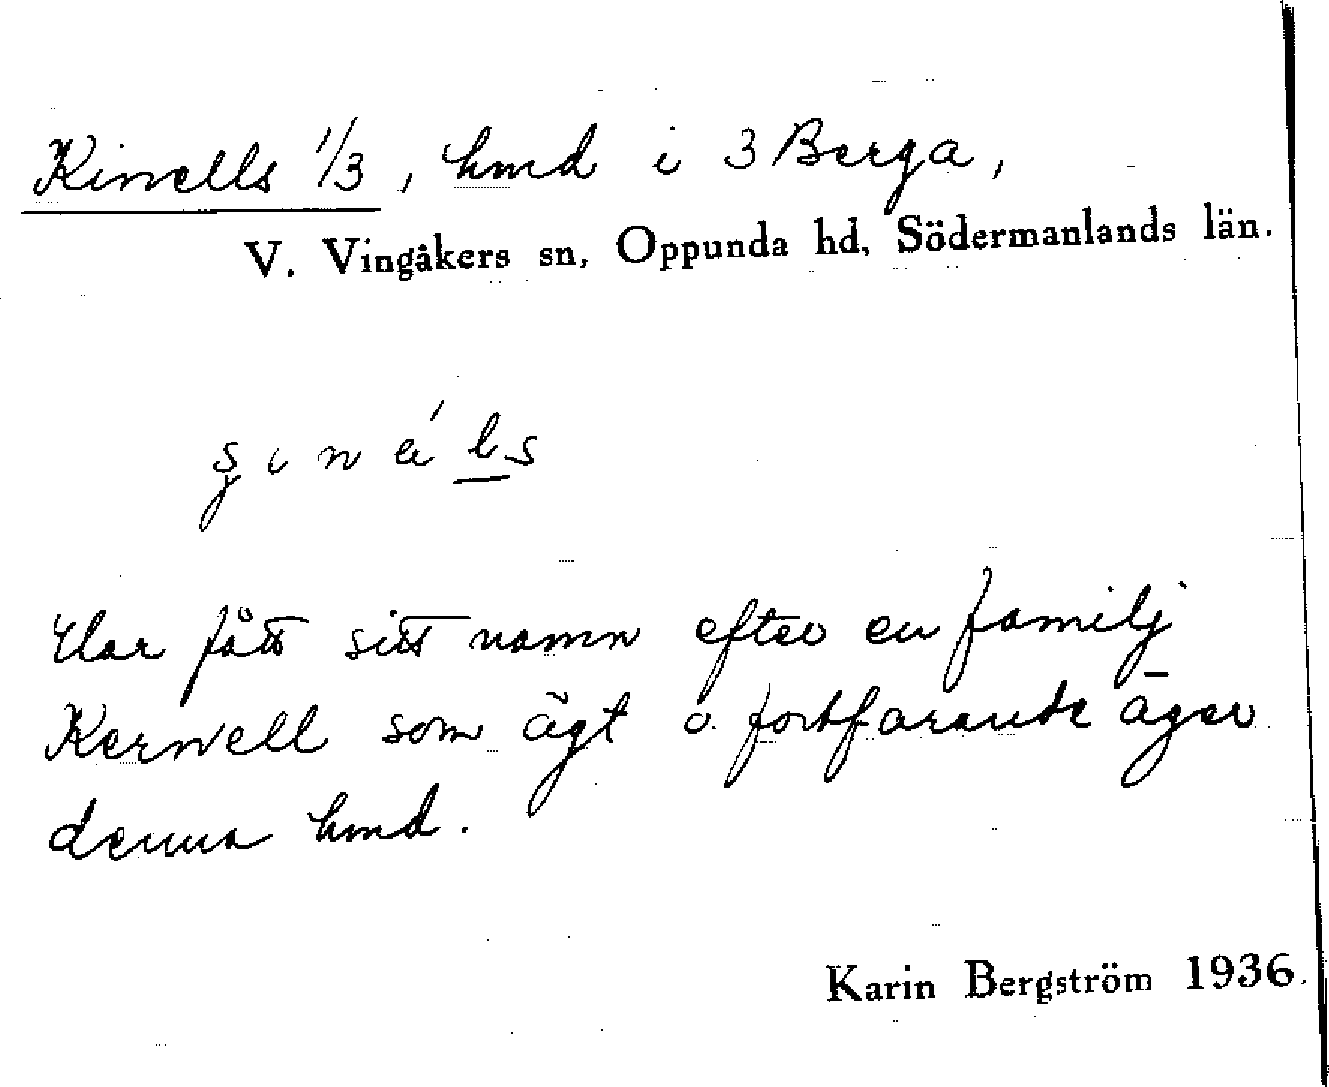 Kinells 1/3, hmd i 3 Berga,
V. Vingåkers sn, Oppunda hd, Södermanlands län.
Har fått sitt namn efter en familj
som ägt o. fortfarande äger
denna hmd.
Karin Bergström 1936.